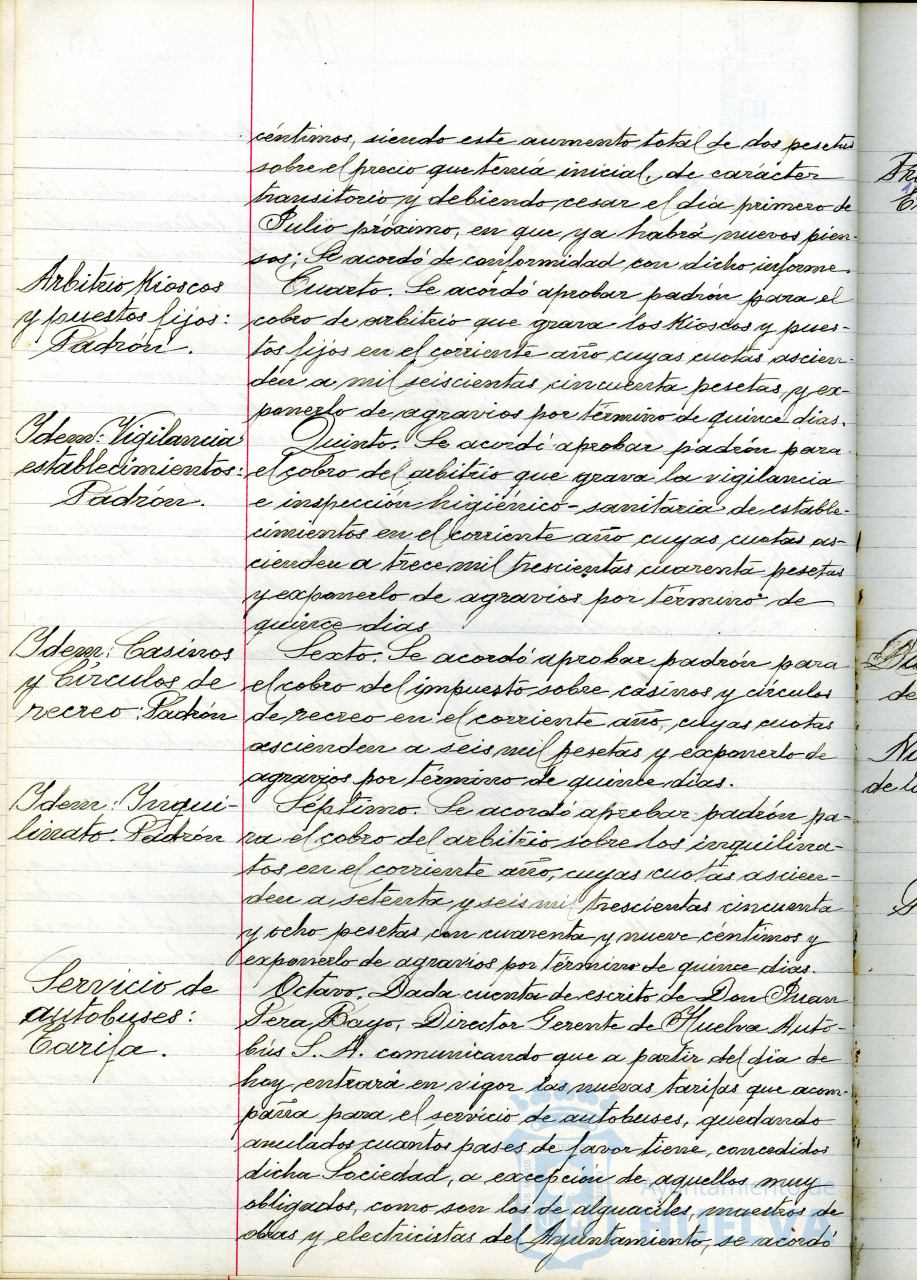 céntimos, siendo este aumento total de dos pesetas
sobre el precio que tenía inicial, de carácter
transitorio y debiendo cesar el día primero de
Julio próximo, en que ya habrá nuevos pien-
sos; Se acordó de conformidad con dicho informe.
Arbitrio Kioscos
y puestos fijos:
Padrón.
Cuarto. Se acordó aprobar padrón para el
cobro de arbitrio que grava los Kioscos y pues-
tos fijos en el corriente año cuyas cuotas ascien-
den a mil seiscientas cincuenta pesetas, y ex-
ponerlo de agravios por término de quince dias.
Idem: Vigilancia
establecimientos:
Padrón.
Quinto. Se acordó aprobar padrón para
el cobro del arbitrio que grava la vigilancia
e inspección higiénico-sanitaria de estable-
cimientos en el corriente año cuyas cuotas as-
cienden a trece mil trescientas cuarenta pesetas
y exponerlo de agravios por término de
quince dias
Idem: Casinos
y Círculos de
recreo: Padrón
Sexto. Se acordó aprobar padrón para
el cobro del impuesto sobre casinos y círculos
de recreo en el corriente año, cuyas cuotas
ascienden a seis mil pesetas y exponerlo de
agravios por término de quince dias.
Idem: Inqui-
linato. Padrón
Séptimo. Se acordó aprobar padrón pa-
ra el cobro del arbitrio sobre los inquilina-
tos en el corriente año, cuyas cuotas ascien-
den a setenta y seis mil trescientas cincuenta
y ocho pesetas con cuarenta y nueve céntimos y
exponerlo de agravios por término de quince dias.
Servicio de
autobuses:
Tarifa.
Octavo. Dada cuenta de escrito de Don Juan
Pera Bayo, Director Gerente de Huelva Auto-
bús S. A. comunicando que a partir del día de
hoy, entrará en vigor las nuevas tarifas que acom-
paña para el servicio de autobuses, quedando
anulados cuantos pases de favor tiene, concedidos
dicha Sociedad, a excepción de aquellos muy
obligados, como son los de alguaciles, maestros de
obras y electricistas del Ayuntamiento, se acordó
Ayuntamiento de
HUELVA